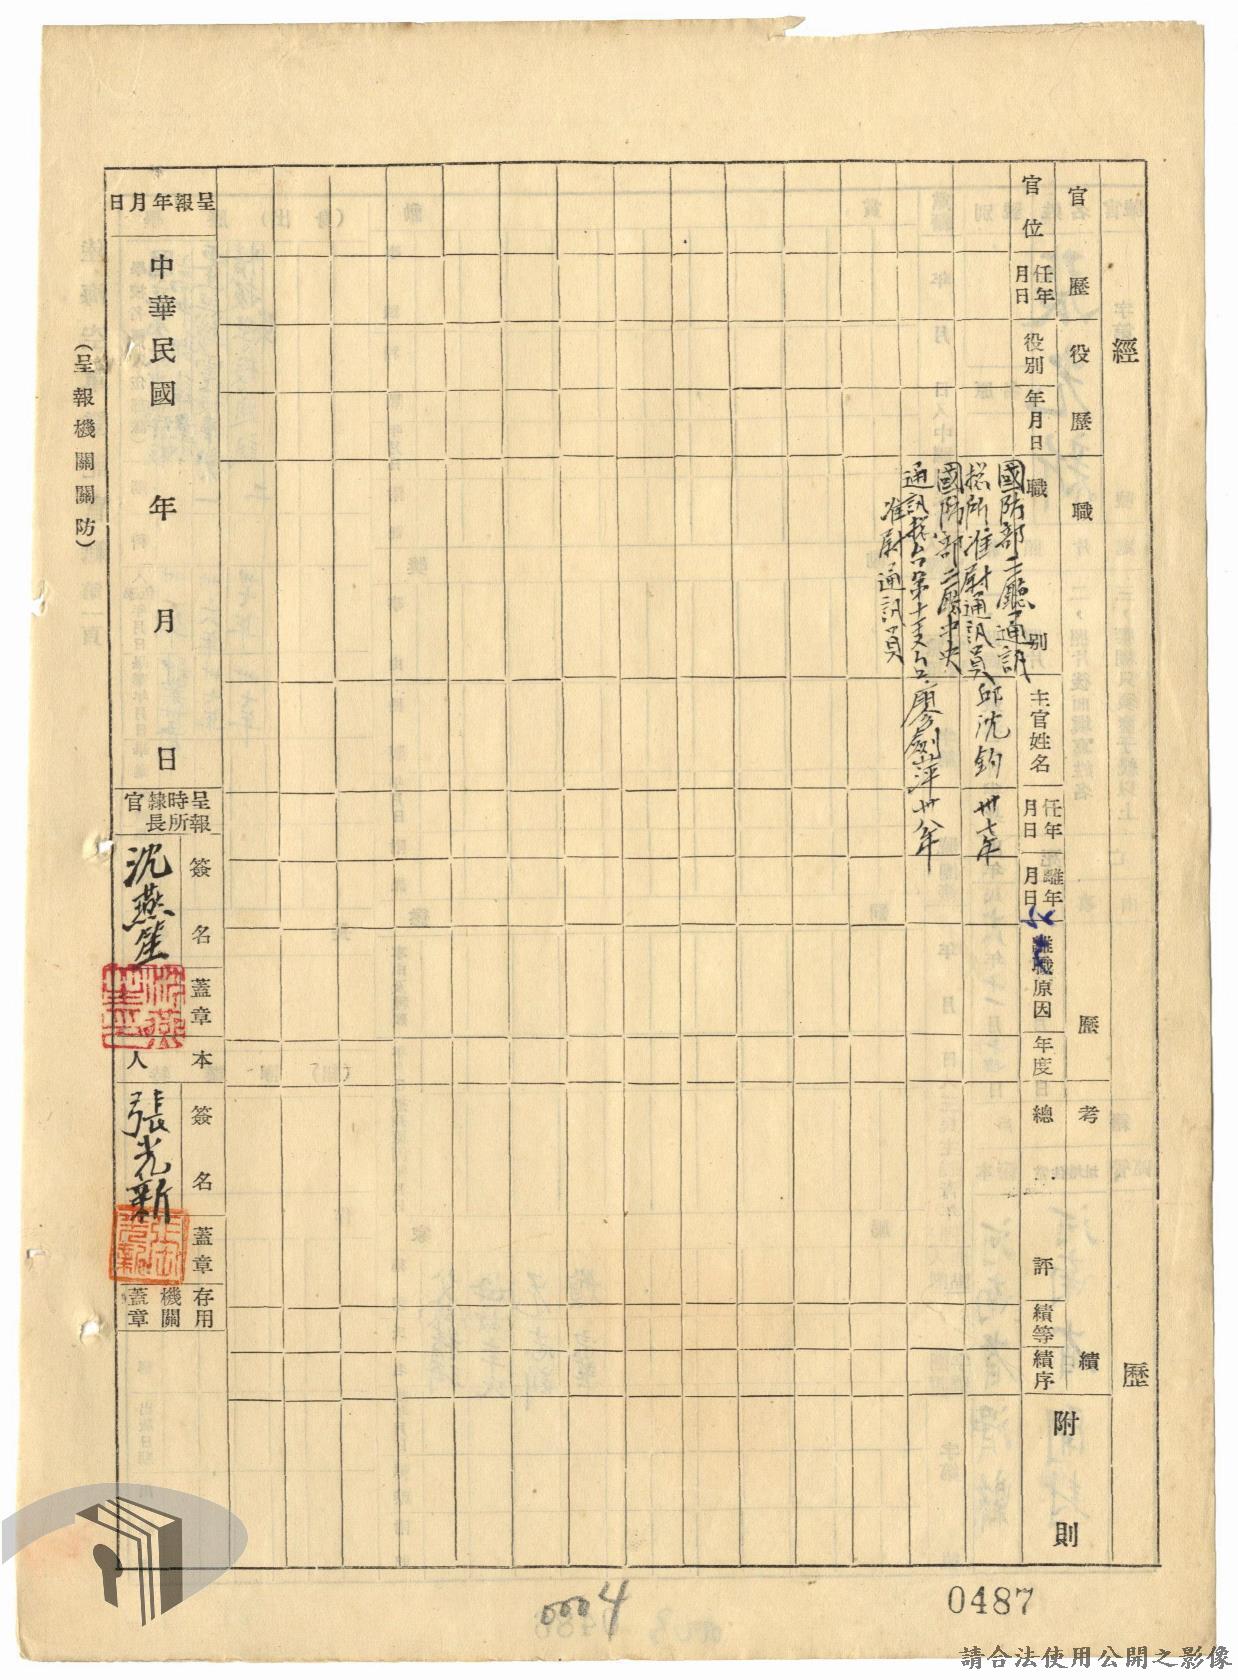 經歷
官歷
役歷
職歷
考績
附則
官位
任年月日
役別
年月日
職別
主官姓名
任年月日
離年月日
離職原因
年度
總評
績等
績序
國防部二廳通訊
總所准尉通訊員 邱沈鈞 卅七年
國防部二廳中央
通訊總台第十支台 廖劍萍 卅八年
准尉通訊員
呈報年月日
中華民國 年 月 日
呈報時所隸長官
簽名
沈燕笙
蓋章
本人
簽名
張光新
蓋章
存用機關蓋章
(呈報機關關防)
0004
0487
請合法使用公開之影像